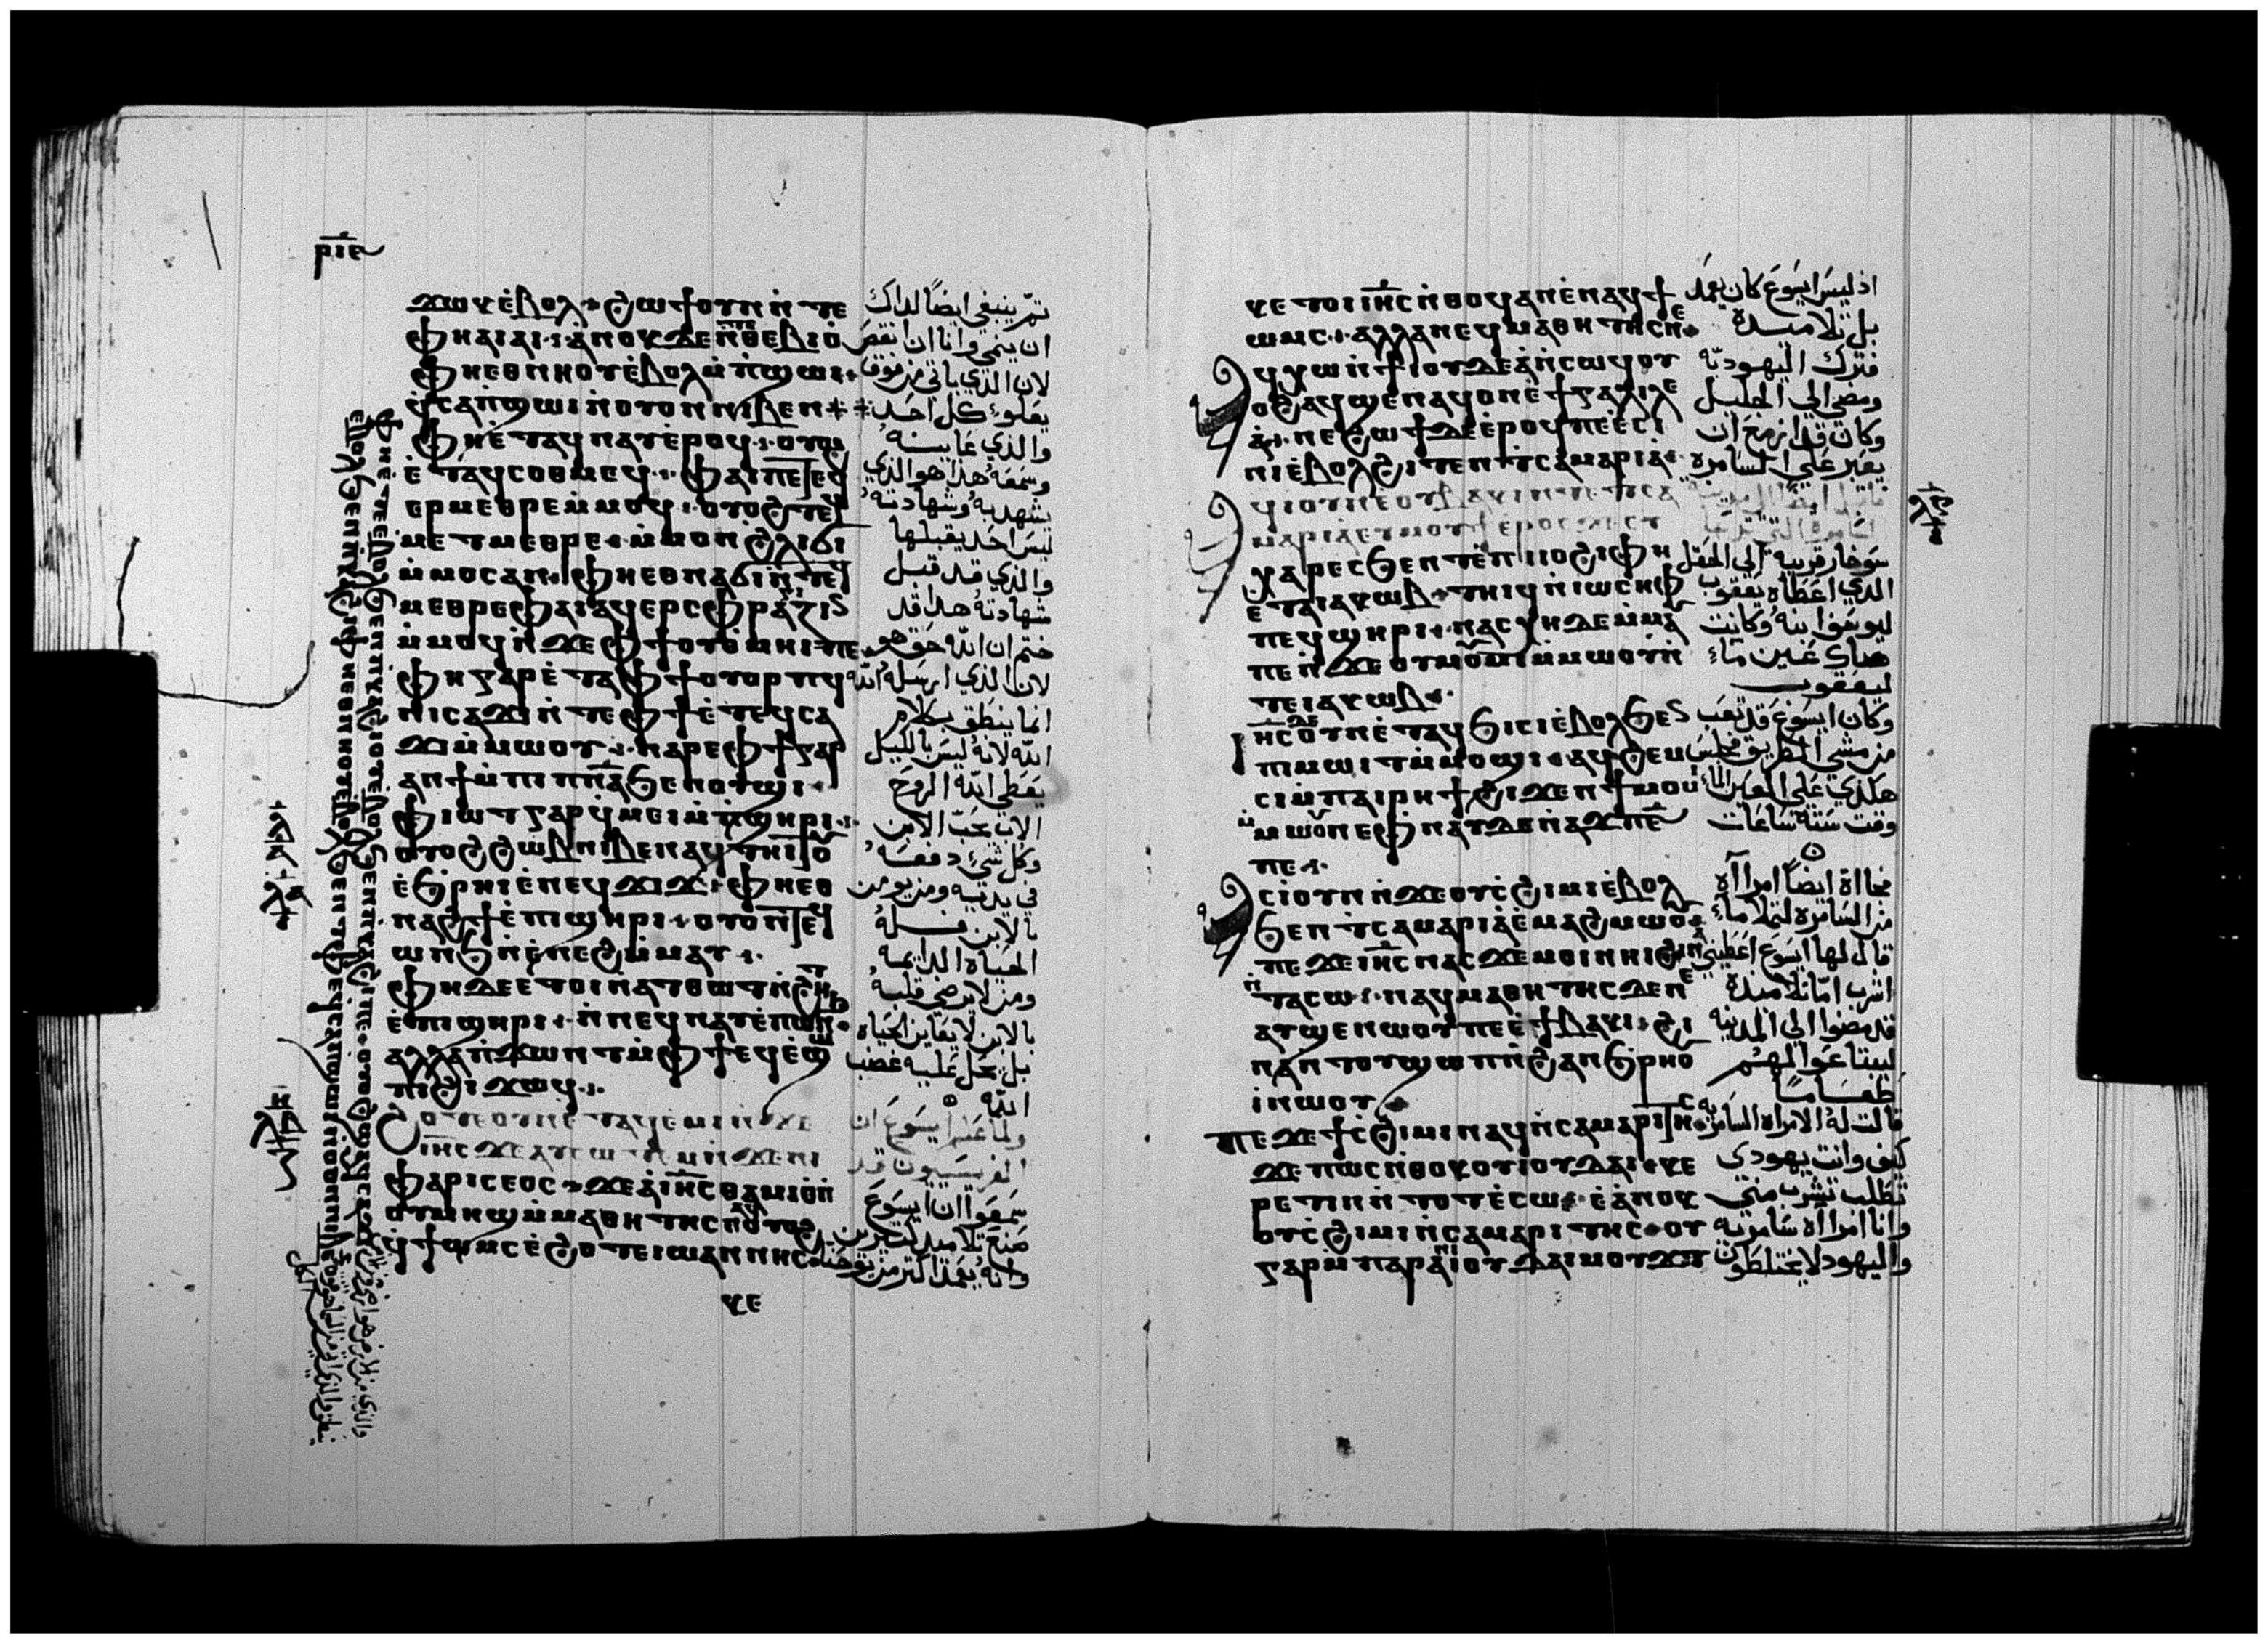 ⲣⲓⲉ
ϫⲱⲕ ⲉ̀ⲃⲟⲗ ϩⲱϯ ⲟⲩⲛ ⲛ̀ⲧⲉ
ⲫⲏ ⲁⲓⲁⲓ ⲁ̀ⲛⲟⲕ ⲇⲉ ⲛ̀ⲧⲁⲑⲉⲃⲓⲟ̀
ⲫⲏ ⲉⲑⲛⲏⲟⲩ ⲉ̀ⲃⲟⲗ ⲙ̀ⲡϣⲱⲓ
ϥ̀ⲥⲁⲡ̀ϣⲱⲓ ⲛ̀ⲟⲩⲟⲛ ⲛⲓⲃⲉⲛ
ⲫⲏ ⲉ̀ⲧⲁϥⲛⲁⲩ ⲉ̀ⲣⲟϥ ⲟⲩⲟϩ
ⲉ̀ⲧⲁϥⲥⲟⲑⲙⲉϥ ⲫⲁⲓ ⲡⲉⲧⲉϥ
ⲉⲣⲙⲉⲑⲣⲉ ⲙ̀ⲙⲟϥ ⲟⲩⲟϩ ⲧⲉϥ
ⲙⲉⲧⲙⲉⲑⲣⲉ ⲙ̀ⲙⲟⲛ ϩ̀ⲗⲓ ϭⲓ
ⲙ̀ⲙⲟⲥ ⲁⲛ ⲫⲏ ⲉⲑⲛⲁϭⲓ ⲛ̀ⲧⲉϥ
ⲙⲉⲑⲣⲉ ⲫⲁⲓ ⲁϥⲉⲣⲥⲫⲣⲁⲅⲓⲍⲓⲛ
ⲙ̀ⲙⲟϥ ⲛ̀ϫⲉ ⲫϯ ⲟⲩⲑ̀ⲙⲏⲓ ⲡⲉ
ⲫⲏ ⲅⲁⲣ ⲉ̀ⲧⲁ ⲫϯ ⲟⲩⲟⲣⲡϥ
ⲛⲓⲥⲁϫⲓ ⲛ̀ⲧⲉ ⲫϯ ⲉ̀ⲧⲉϥⲥⲁ
ϫⲓ ⲙ̀ⲙⲱⲟⲩ ⲛⲁⲣⲉ ⲫϯ ⲅⲁⲣ
ⲁⲛ ϯ ⲙ̀ⲡⲓⲡ̅ⲛ̅ⲁ̅ ϧⲉⲛ ⲟⲩϣⲓ
ⲫⲓⲱⲧ ⲅⲁⲣ ϥ̀ⲙⲉⲓ ⲙ̀ⲡ̀ϣⲏⲣⲓ
ⲟⲩⲟϩ ϩⲱⲃ ⲛⲓⲃⲉⲛ ⲁϥⲧⲏⲓⲧⲟⲩ
ⲉ̀ϧ̀ⲣⲏⲓ ⲉ̀ⲛⲉϥϫⲓϫ ⲫⲏ ⲉⲑ
ⲛⲁϩϯ ⲉ̀ⲡⲓϣⲏⲣⲓ ⲟⲩⲟⲛⲧⲉϥ
ⲱⲛϧ ⲛ̀ⲉ̀ⲛⲉϩ ⲙ̀ⲙⲁⲩ
ⲫⲏ ⲇⲉ ⲉⲧⲟⲓ ⲛ̀ⲁⲧⲑⲱⲧ ⲛ̀ϩⲏⲧ
ⲉ̀ⲡⲓϣⲏⲣⲓ ⲛ̀ⲛⲉϥⲛⲁⲩ ⲉ̀ⲡⲱⲛϧ
ⲁⲗⲗⲁ ⲡ̀ϫⲱⲛⲧ ⲙ̀ⲫϯ ⲉϥⲉ̀ϣⲱ
ⲡⲓ ϩⲓϫⲱϥ
ϩⲟⲧⲉ ⲟⲩⲛ ⲉ̀ⲧⲁϥⲉ̀ⲙⲓ ⲛ̀ϫⲉ
ⲓⲏ̅ⲥ̅ ϫⲉ ⲁⲩⲥⲱⲧⲉⲙ ⲛ̀ϫⲉ ⲛⲓ
ⲫⲁⲣⲓⲥⲉⲟⲥ ϫⲉ ⲁ̀ ⲓⲏ̅ⲥ̅ ⲑⲁⲙⲓⲟ̀ ⲛ̀
ⲟⲩⲙⲏϣ ⲙ̀ⲙⲁⲑⲏⲧⲏⲥ ⲟⲩⲟϩ
ϥ̀ϯⲱⲙⲥ ⲉ̀ϩⲟⲧⲉ ⲓⲱⲁⲛⲛⲏⲥ
ⲕⲉ
تم ينبغي ايضا لداك
ان ينمي وانا ان انقص
لان الذي ياتي من فوق
يعلوء كل احد
والذي عاينه
وسمعه هذا هو الذي
يشهد به وشهادته
ليس احد يقبلها
والذي قد قبل
شهادته هذا قد
ختم ان الله حق هو
لان الذي ارسله الله
انما ينطق بكلام
الله لانه ليس بالكيل
يعطي الله الروح
الاب يحب الابن
وكل شيء دفعه
في يديه ومن يومن
بالابن فله
الحياه الدايمه
ومن لا يرضي قلبه
بالابن لا يعاين الحياه
بل يحل عليه غضب
الله
ولما علم ايسوع ان
الفريسيون قد
سمعوا ان ايسوع
صنع تلاميد كثيرين
وانه يعمد اكثر من يوحنا
ⲕⲉ ⲧⲟⲓ ⲓⲏ̅ⲥ̅ ⲛ̀ⲑⲟϥ ⲁⲛ ⲉ̀ⲛⲁϥϯ
ⲱⲙⲥ ⲁⲗⲗⲁ ⲛⲉϥⲙⲁⲑⲏⲧⲏⲥ ⲛⲉ
ⲁϥⲭⲱ ⲛ̀ϯⲓⲟⲩⲇⲉⲁ̀ ⲛ̀ⲥⲱϥ ⲟⲩ
ⲟϩ ⲁϥϣⲉⲛⲁϥ ⲟⲛ ⲉ̀ϯⲅⲁⲗⲓⲗⲉ
ⲁ̀ ⲛⲉ ϩⲱϯ ⲇⲉ ⲉ̀ⲣⲟϥ ⲡⲉ ⲉ̀ⲥⲓ
ⲛⲓ ⲉ̀ⲃⲟⲗ ϩⲓⲧⲉⲛ ϯⲥⲁⲙⲁⲣⲓⲁ
ⲁϥⲓ̀ ⲟⲩⲛ ⲉ̀ⲟⲩⲃⲁⲕⲓ ⲛ̀ⲧⲉ ϯⲥⲁ
ⲙⲁⲣⲓⲁ ⲉⲩⲙⲟⲩϯ ⲉ̀ⲣⲟⲥ ϫⲉ ⲥⲩ
ⲭⲁⲣ ⲉⲥϧⲉⲛⲧ ⲉ̀ⲡⲓⲓⲟϩⲓ ⲫⲏ
ⲉ̀ⲧⲁ ⲓⲁⲕⲱⲃ ⲧⲏⲓϥ ⲛ̀ⲓⲱⲥⲏⲫ
ⲡⲉϥϣⲏⲣⲓ ⲛⲁⲥⲭⲏ ⲇⲉ ⲙ̀ⲙⲁⲩ
ⲡⲉ ⲛ̀ϫⲉ ⲟⲩⲙⲟⲩⲙⲓ ⲙ̀ⲙⲱⲟⲩ ⲛ̀
ⲧⲉ ⲓⲁⲕⲱⲃ
ⲓⲏ̅ⲥ̅ ⲇⲉ ⲟⲩⲛ ⲉ̀ⲧⲁϥϧⲓⲥⲓ ⲉ̀ⲃⲟⲗ ϧⲉⲛ
ⲡⲓⲙⲱⲓⲧ ⲙ̀ⲙⲟϣⲓ ⲁϥϩⲉⲙ
ⲥⲓ ⲙ̀ⲡⲁⲓⲣⲏϯ ϩⲓϫⲉⲛ ϯⲙⲟⲩⲙⲓ
ⲙ̀ⲙⲱⲟⲩ ⲛⲉ ⲫⲛⲁⲩ ⲇⲉ ⲛ̀ⲁϫⲡ ⲋ̅
ⲡⲉ
ⲁⲥⲓ̀ ⲟⲩⲛ ⲛ̀ϫⲉ ⲟⲩⲥ̀ϩⲓⲙⲓ ⲉ̀ⲃⲟⲗ
ϧⲉⲛ ϯⲥⲁⲙⲁⲣⲓⲁ̀ ⲉ̀ⲙⲁϩⲙⲱⲟⲩ
ⲡⲉϫⲉ ⲓⲏ̅ⲥ̅ ⲛⲁⲥ ϫⲉ ⲙⲟⲓ ⲛⲏⲓ ϩⲓⲛⲁ
ⲛ̀ⲧⲁⲥⲱ ⲛⲉϥⲙⲁⲑⲏⲧⲏⲥ ⲇⲉ ⲛⲉ
ⲁⲩϣⲉⲛⲱⲟⲩ ⲡⲉ ⲉ̀ϯⲃⲁⲕⲓ ϩⲓ
ⲛⲁ ⲛ̀ⲧⲟⲩϣⲱⲡ ⲛ̀ϩⲁⲛϧ̀ⲣⲏⲟⲩ
ⲓ̀ ⲛⲱⲟⲩ
ⲡⲉϫⲉ ϯⲥ̀ϩⲓⲙⲓ ⲛⲁϥ ⲛ̀ⲥⲁⲙⲁⲣⲓⲧⲏⲥ
ϫⲉ ⲡⲱⲥ ⲛ̀ⲑⲟⲕ ⲟⲩⲓⲟⲩⲇⲁⲓ ⲕⲉ
ⲣⲉⲧⲓⲛ ⲛ̀ⲧⲟⲧ ⲉ̀ⲥⲱ ⲉ̀ ⲁⲛⲟⲕ
ⲟⲩⲥ̀ϩⲓⲙⲓ ⲛ̀ⲥⲁⲙⲁⲣⲓⲧⲏⲥ ⲟⲩ
ⲅⲁⲣ ⲙ̀ⲡⲁⲣⲉ ⲛⲓⲓⲟⲩⲇⲁⲓ ⲙⲟⲩϫⲧ
اذ ليس ايسوع كان يعمد
بل تلاميده
فترك اليهوديه
ومضي الي الجليل
وكان قد ازمع ان
يعبر علي السامره
سوخار قريبه الي الحقل
الذي اعطاه يعقوب
ليوسف ابنه وكانت
هناك عين ماء
ليعقوب
وكان ايسوع قد تعب
من مشي الطريق فجلس
هكذي علي العين الماء
وقت سته ساعات
فجاءة ايضا امراه
من السامره لتملا ماء
قال لها ايسوع اعطيني
اشرب اما تلاميده
قد مضوا الي المدينه
ليبتاعوا لهم
طعاما
قالت له الامراه السامريه
كيف وانت يهودي
تطلب تشرب مني
وانا امراه سامريه
واليهود لا يختلطون